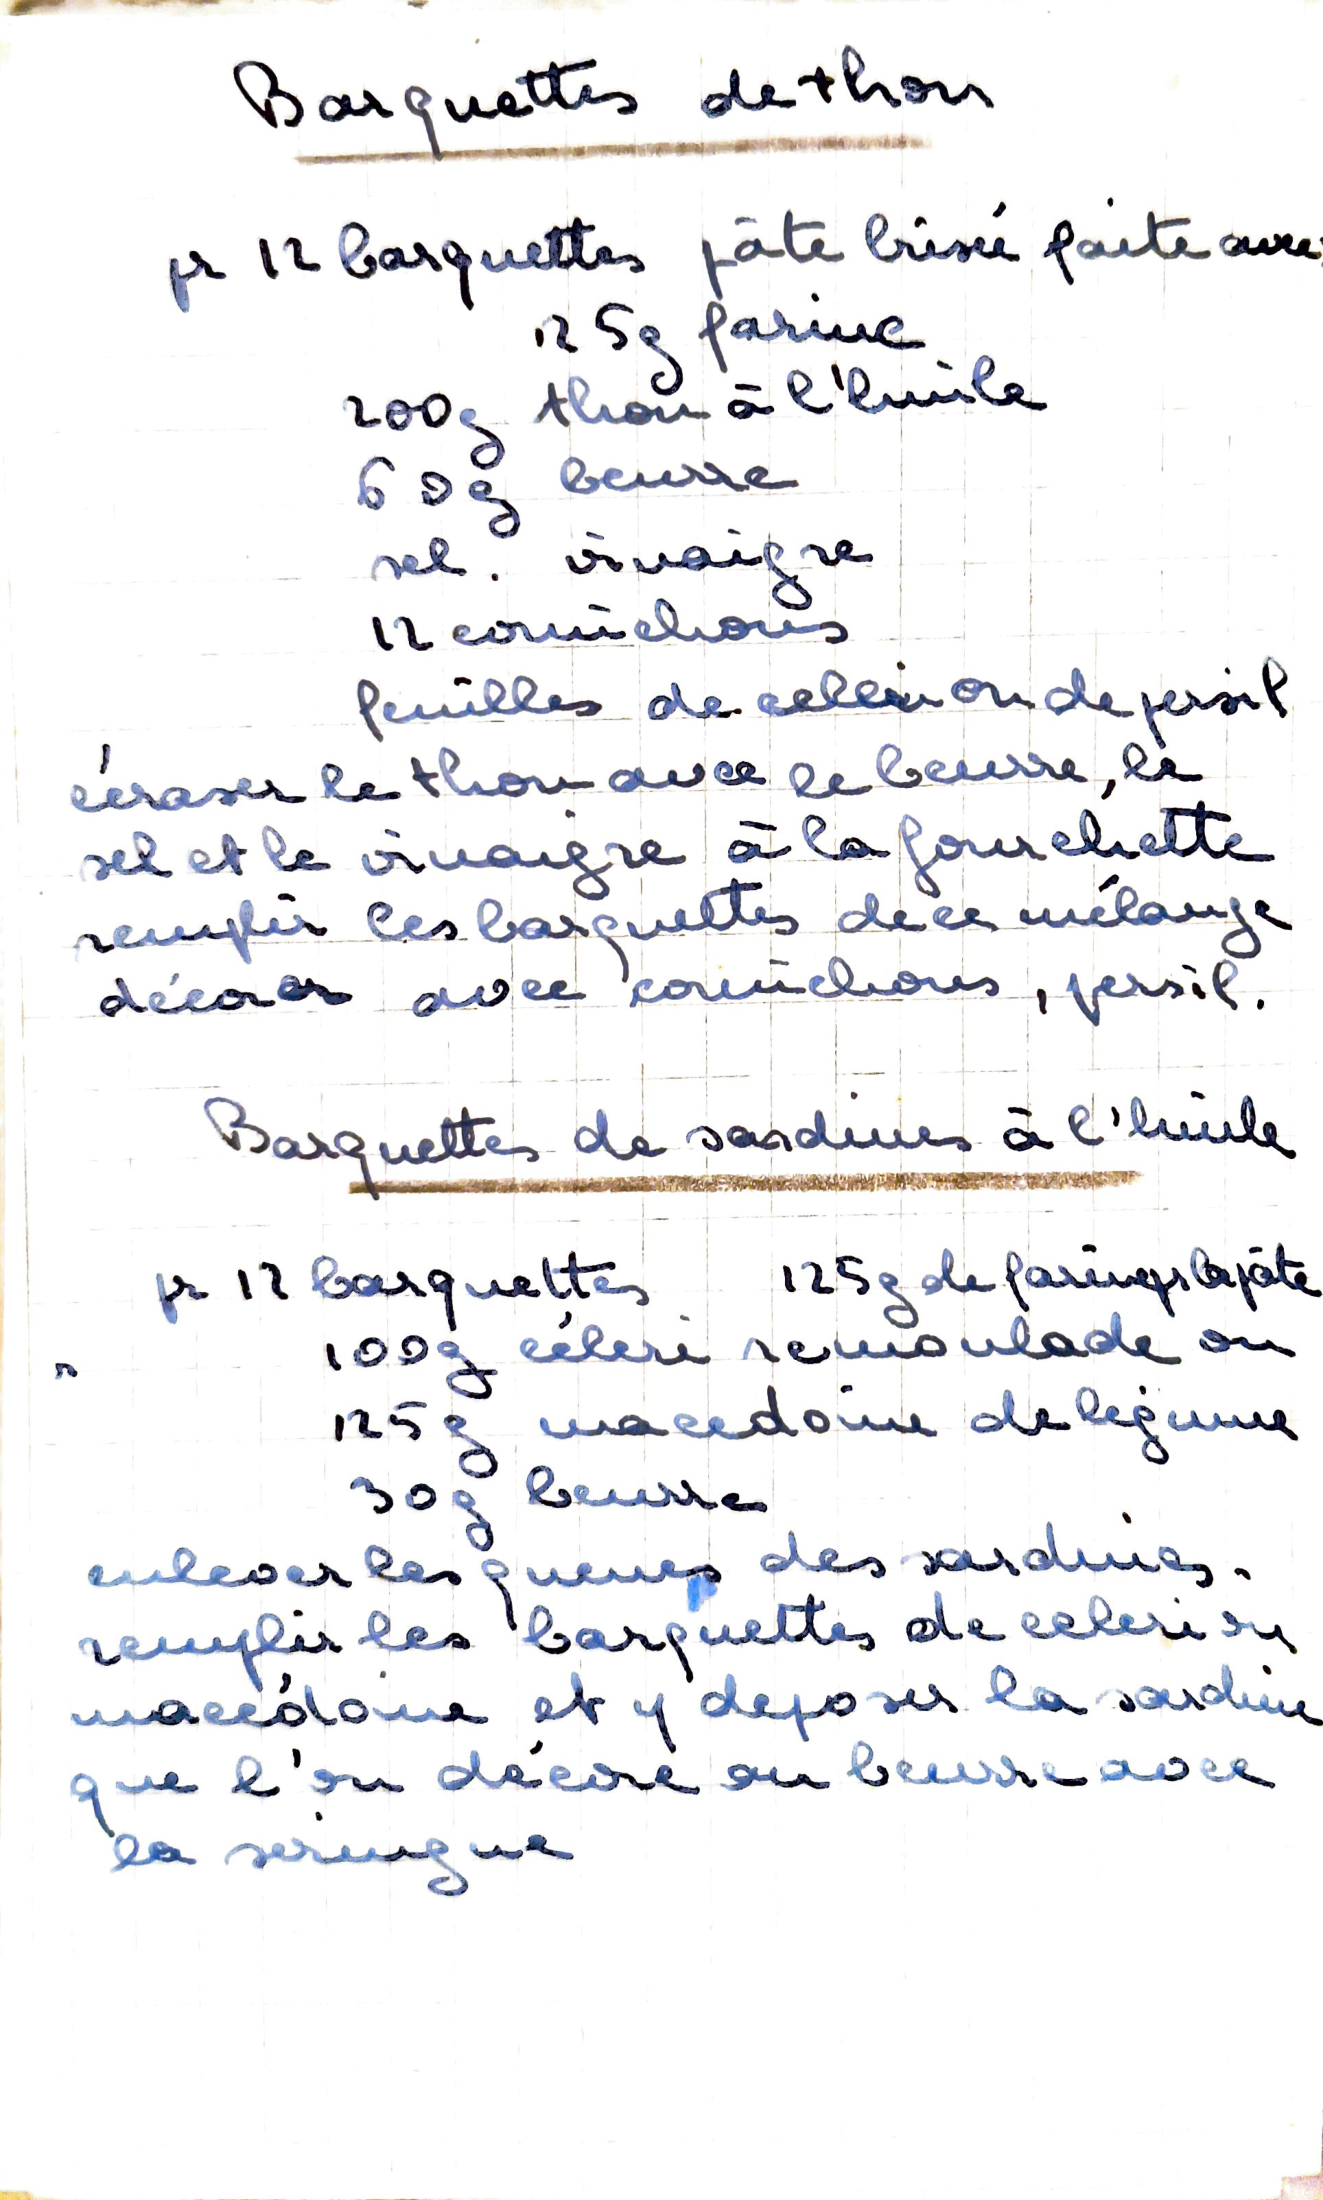 Barquettes de thon
pr 12 barquettes pâte brisée faite avec
125g farine
200g thon à l'huile
60g beurre
sel. vinaigre
12 cornichons
feuilles de celeri ou de persil
écraser le thon avec le beurre, le
sel et le vinaigre à la fourchette
remplir les barquettes de ce mélange
décorer avec cornichons, persil.
Barquettes de sardines à l'huile
pr 12 barquettes 125g de farine pr la pâte
100g céleri remoulade ou
125g macedoine de légumes
30g beurre
enlever les queues des sardines.
remplir les barquettes de celeri ou
macédoine et y deposer la sardine
que l'on décore au beurre avec
la seringue